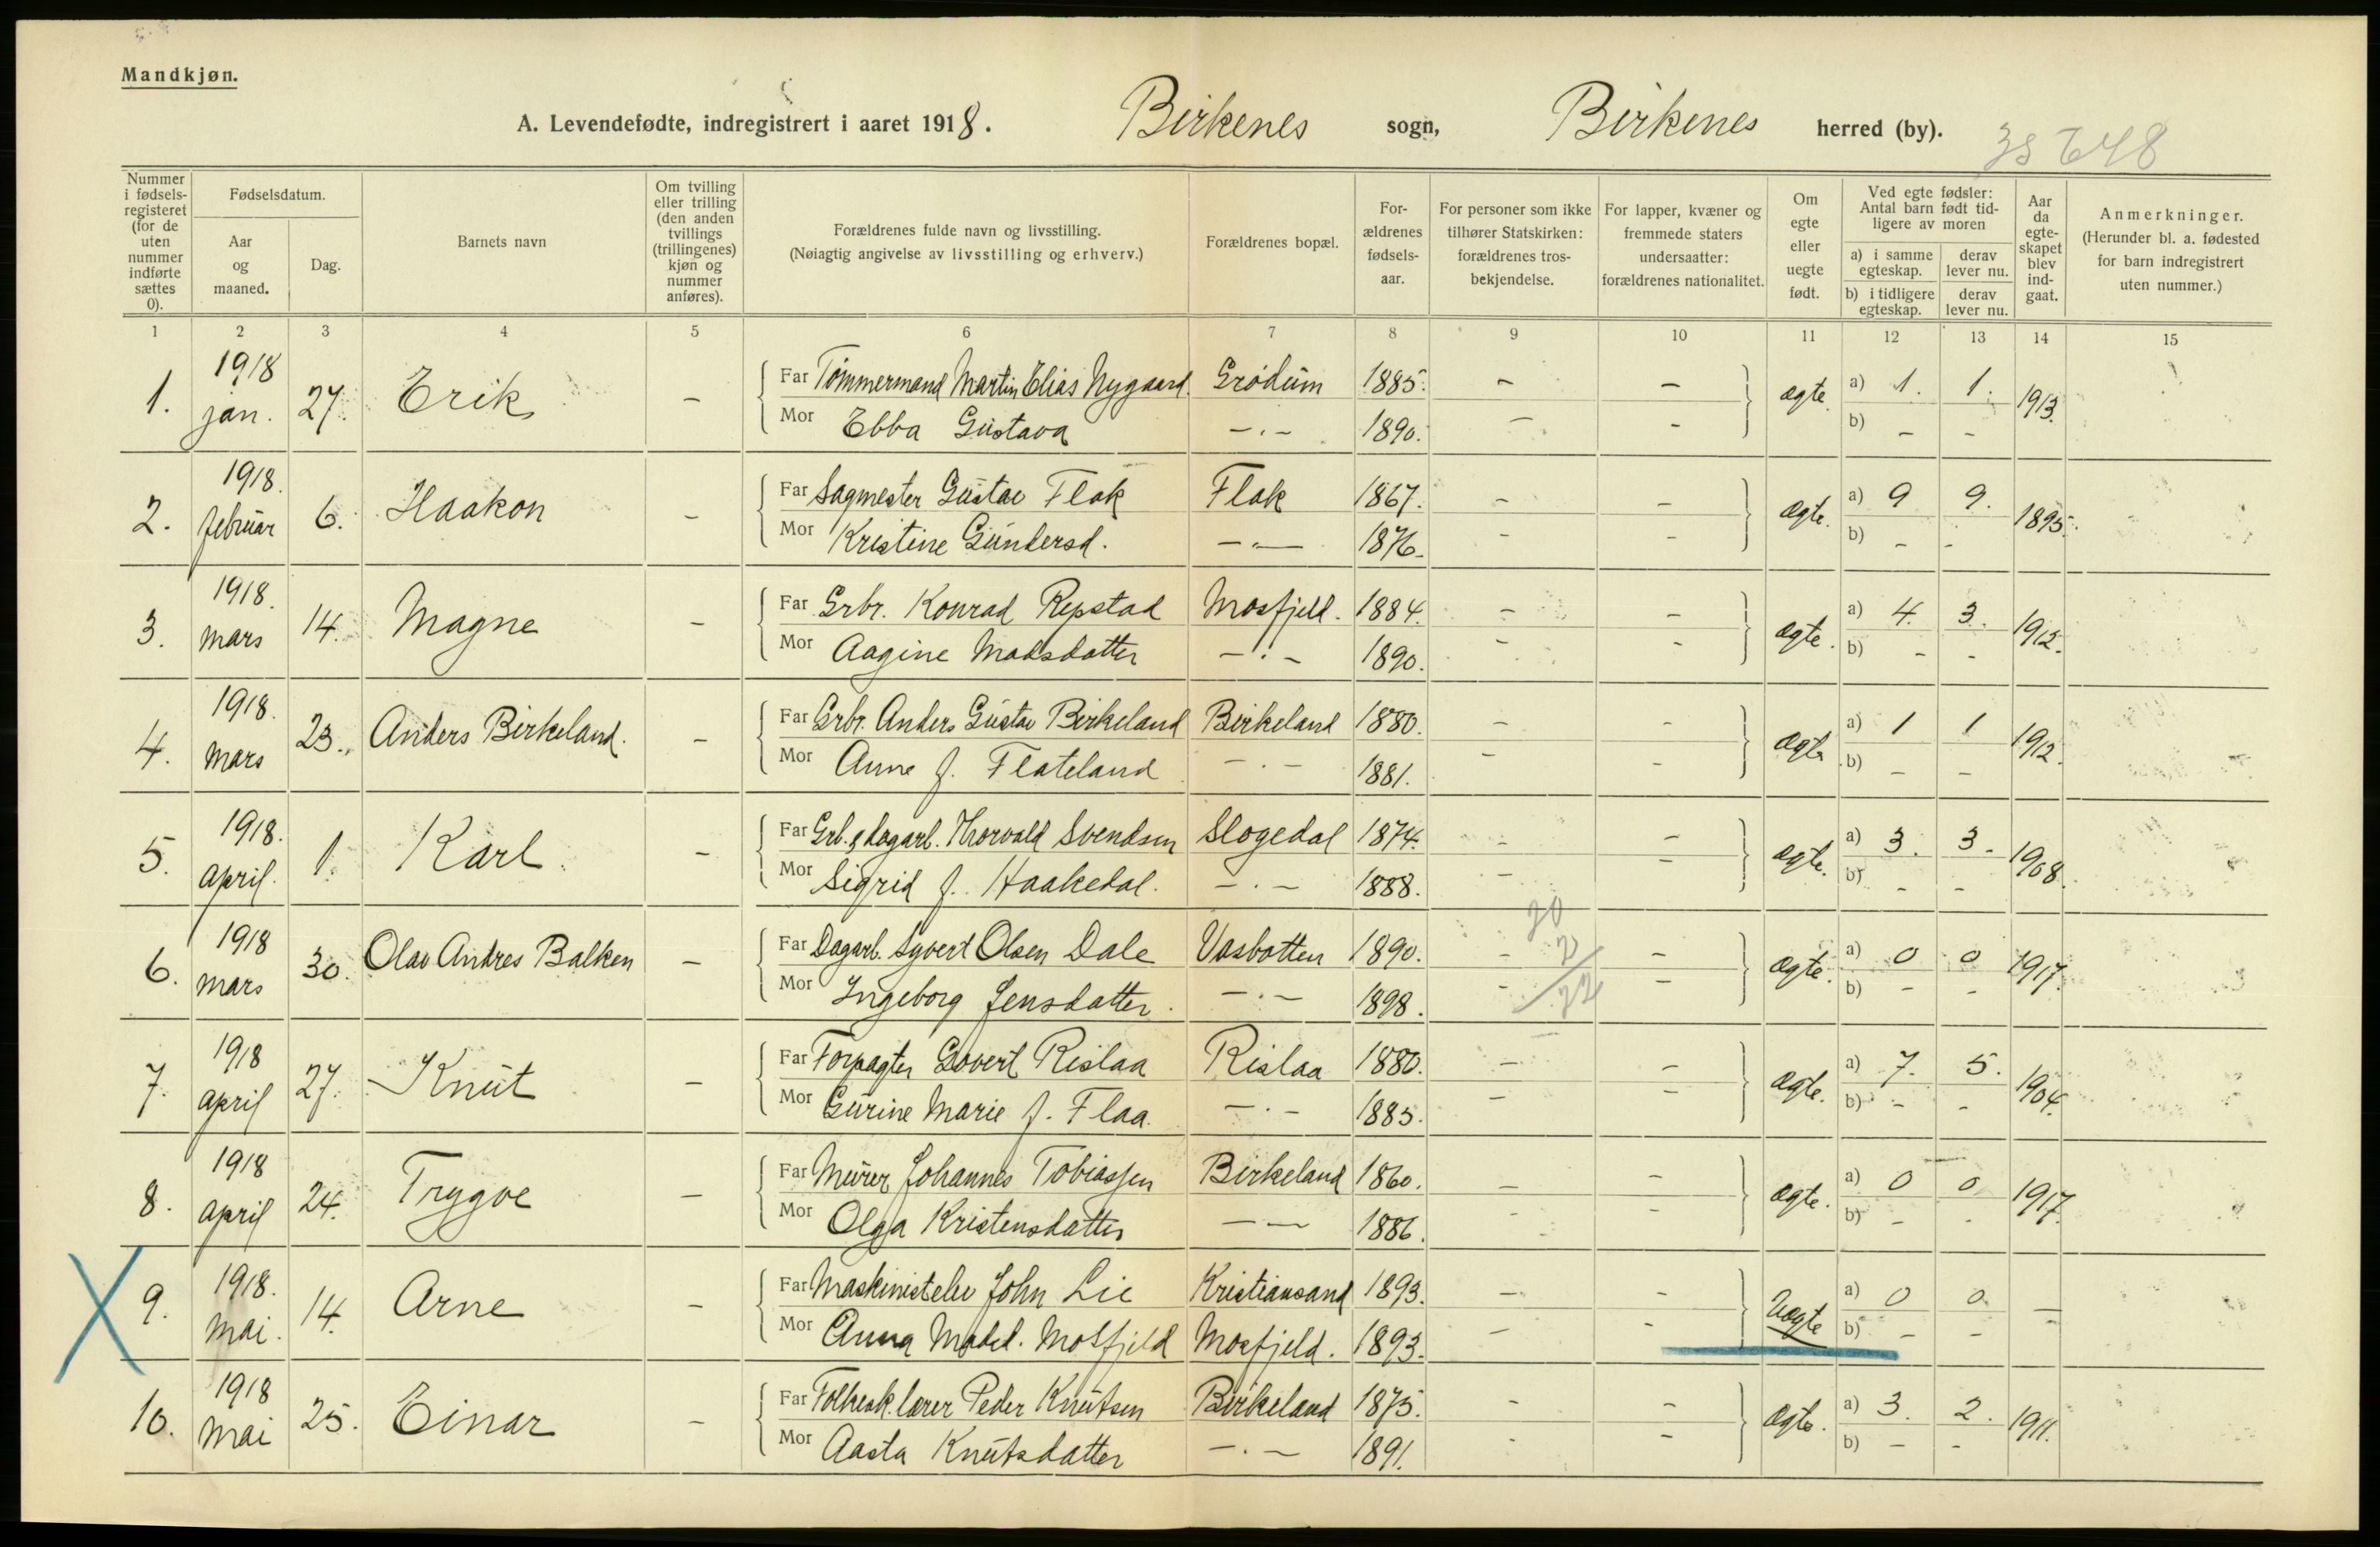 Mandkjøn.
A. Levendefødte, indregistrert i aaret 1918. Birkenes sogn, Birkenes herred (by).
Nummer i fødsels-registeret (for de uten nummer indførte sættes 0).
Fødselsdatum.
Aar og maaned.
Dag.
Barnets navn
Om tvilling eller trilling (den anden tvillings (trillingenes) kjøn og nummer anføres).
Forældrenes fulde navn og livsstilling.
(Nøiagtig angivelse av livsstilling og erhverv.)
Forældrenes bopæl.
For-ældrenes fødsels-aar.
For personer som ikke tilhører Statskirken: forældrenes tros-bekjendelse.
For lapper, kvæner og fremmede staters undersaatter: forældrenes nationalitet.
Om egte eller uegte født.
Ved egte fødsler: Antal barn født tid-ligere av moren
a) i samme egteskap.
derav lever nu.
b) i tidligere egteskap.
derav lever nu.
Aar da egte-skapet blev ind-gaat.
Anmerkninger.
(Herunder bl. a. fødested for barn indregistrert uten nummer.)
1 2 3 4 5 6 7 8 9 10 11 12 13 14 15
1. 1918 jan. 27. Erik - Far Tømmermand Martin Elias Nygaard. Grødum 1885. - - ægte a) 1. 1. 1913.
Mor Ebba Gustava -.- 1890. - - b) - -
2. 1918. februar 6. Haakon - Far Sagmester Gustav Flak Flak 1867. - - ægte. a) 9 9. 1895.
Mor Kristine Gundersd. -.- 1876. - - b) - -
3. 1918. mars 14. Magne - Far Grbr. Konrad Repstad Mosfjeld. 1884. - - ægte. a) 4. 3. 1912.
Mor Aagine Madsdatter -.- 1890. - - b) - -
4. 1918. mars 23. Anders Birkeland. - Far Grbr. Anders Gustav Birkeland Birkeland 1880. - - ægte a) 1 1 1912.
Mor Anne f. Flateland -.- 1881. - - b) - -
5. 1918. april. 1. Karl - Far Grb. & dagarb. Thorvald Svendsen Slogedal 1874. - - ægte. a) 3. 3. 1908.
Mor Sigrid f. Haakedal. -.- 1888. - - b) - -
6. 1918 mars 30. Olav Andres Balken - Far Dagarb. Syvert Olsen Dale Vasbotten 1890. - - ægte. a) 0 0 1917.
Mor Ingeborg Jensdatter. -.- 1898. - - b) - -
7. 1918 april 27. Knut - Far Forpagter Govert Rislaa Rislaa 1880. - - ægte. a) 7. 5. 1904.
Mor Gurine Marie f. Flaa. -.- 1885. - - b) - -
8. 1918 april 24. Trygve - Far Murer Johannes Tobiassen Birkeland 1860. - - ægte. a) 0 0 1917.
Mor Olga Kristensdatter -- 1886. - - b) - -
9. 1918. mai. 14. Arne - Far Maskinistelev John Lie Kristiansand 1893. - - Uægte a) 0 0. -
Mor Anna Mosfjeld Mosfjeld. 1893. - - b) - -
10. 1918 mai 25. Einar - Far Folkesk.lærer Peder Knutsen Birkeland 1875. - - ægte. a) 3. 2. 1911.
Mor Aasta Knutsdatter -.- 1891. - - b) - -